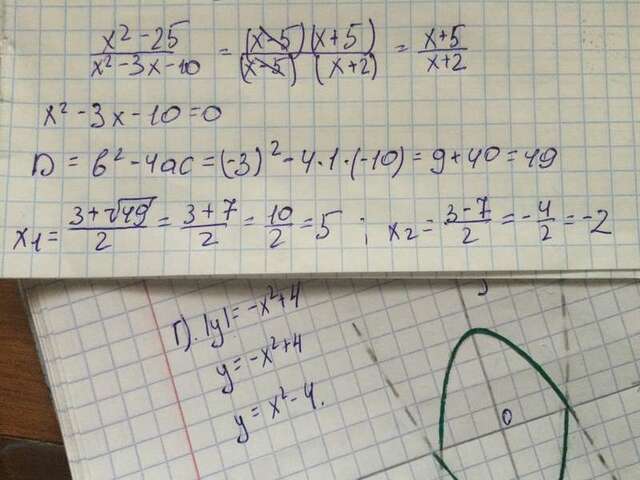 x² - 25 / x² - 3x - 10 = (x - 5)(x + 5) / (x - 5)(x + 2) = x + 5 / x + 2
x² - 3x - 10 = 0
D = b² - 4ac = (-3)² - 4·1·(-10) = 9 + 40 = 49
x₁ = 3 + √49 / 2 = 3 + 7 / 2 = 10 / 2 = 5 ; x₂ = 3 - 7 / 2 = -4 / 2 = -2
Г). |y| = -x² + 4
y = -x² + 4
y = x² - 4.
0